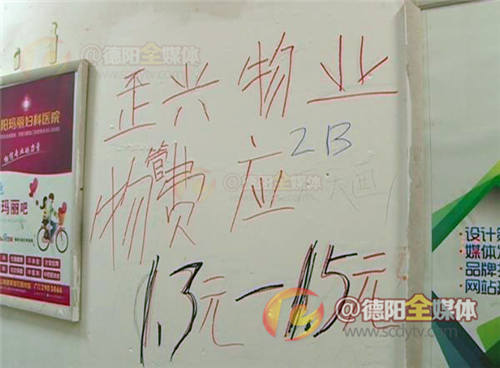 @德阳全媒体
歪兴物业
物管费应 2B
1.3元—1.5元
阳玛丽妇科医院
玛丽吧
设计
媒体
品牌
网站
@德阳全媒体
@德阳全媒体
www.scdytv.com